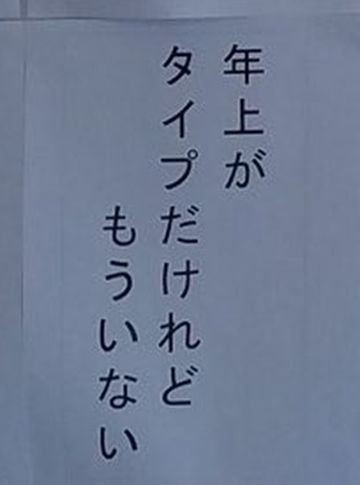 年上が
タイプだけれど
もういない